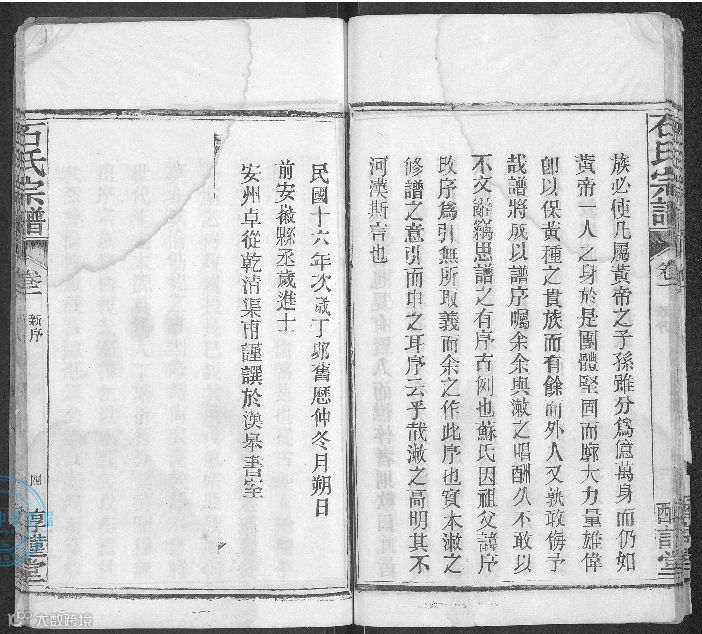 族必使凡屬黃帝之子孫雖分爲億萬身而仍如
黃帝一人之身於是團體堅固而廓大力量雄偉
卽以保黃種之貴族而有餘而外人又孰敢侮予
哉譜將成以譜序囑余余與漱之唱酬久不敢以
不文辭竊思譜之有序古例也蘇氏因祖父諱序
改序爲引無所取義而余之作此序也實本漱之
修譜之意引而申之耳序云乎哉漱之高明其不
河漢斯言也
民國十六年次歲丁卯舊歷仲冬月朔日
前安徽縣丞歲進士
安州卓從乾清渠甫謹譔於漢皋書室
石氏宗譜
卷一
新序
四
惇謹堂
石氏宗譜
卷一
大数跨境